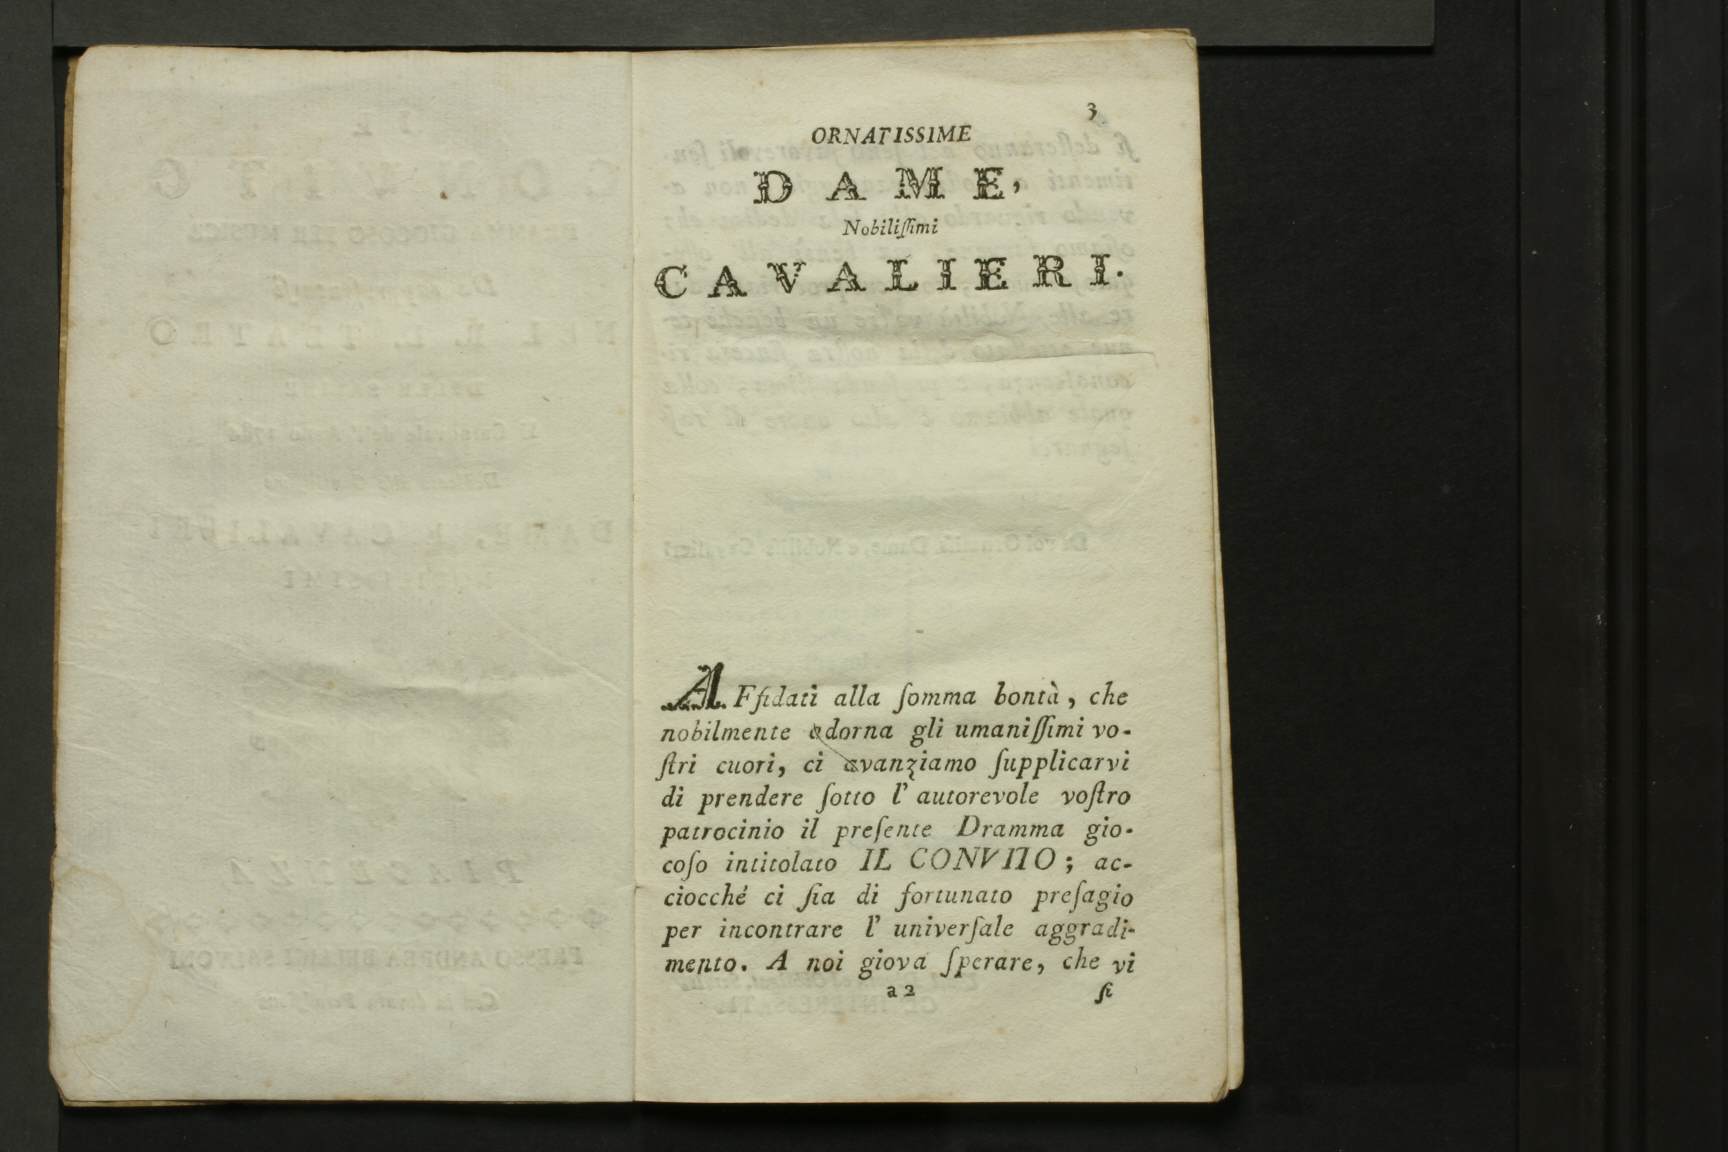 3
ORNATISSIME
DAME,
Nobiliſſimi
CAVALIERI.
AFfidati alla ſomma bontà, che
nobilmente adorna gli umaniſſimi vo-
ſtri cuori, ci avanziamo ſupplicarvi
di prendere ſotto l' autorevole voſtro
patrocinio il preſente Dramma gio-
coſo intitolato IL CONVITO; ac-
ciocché ci ſia di fortunato preſagio
per incontrare l' univerſale aggradi-
mento. A noi giova ſperare, che vi
a 2
ſi